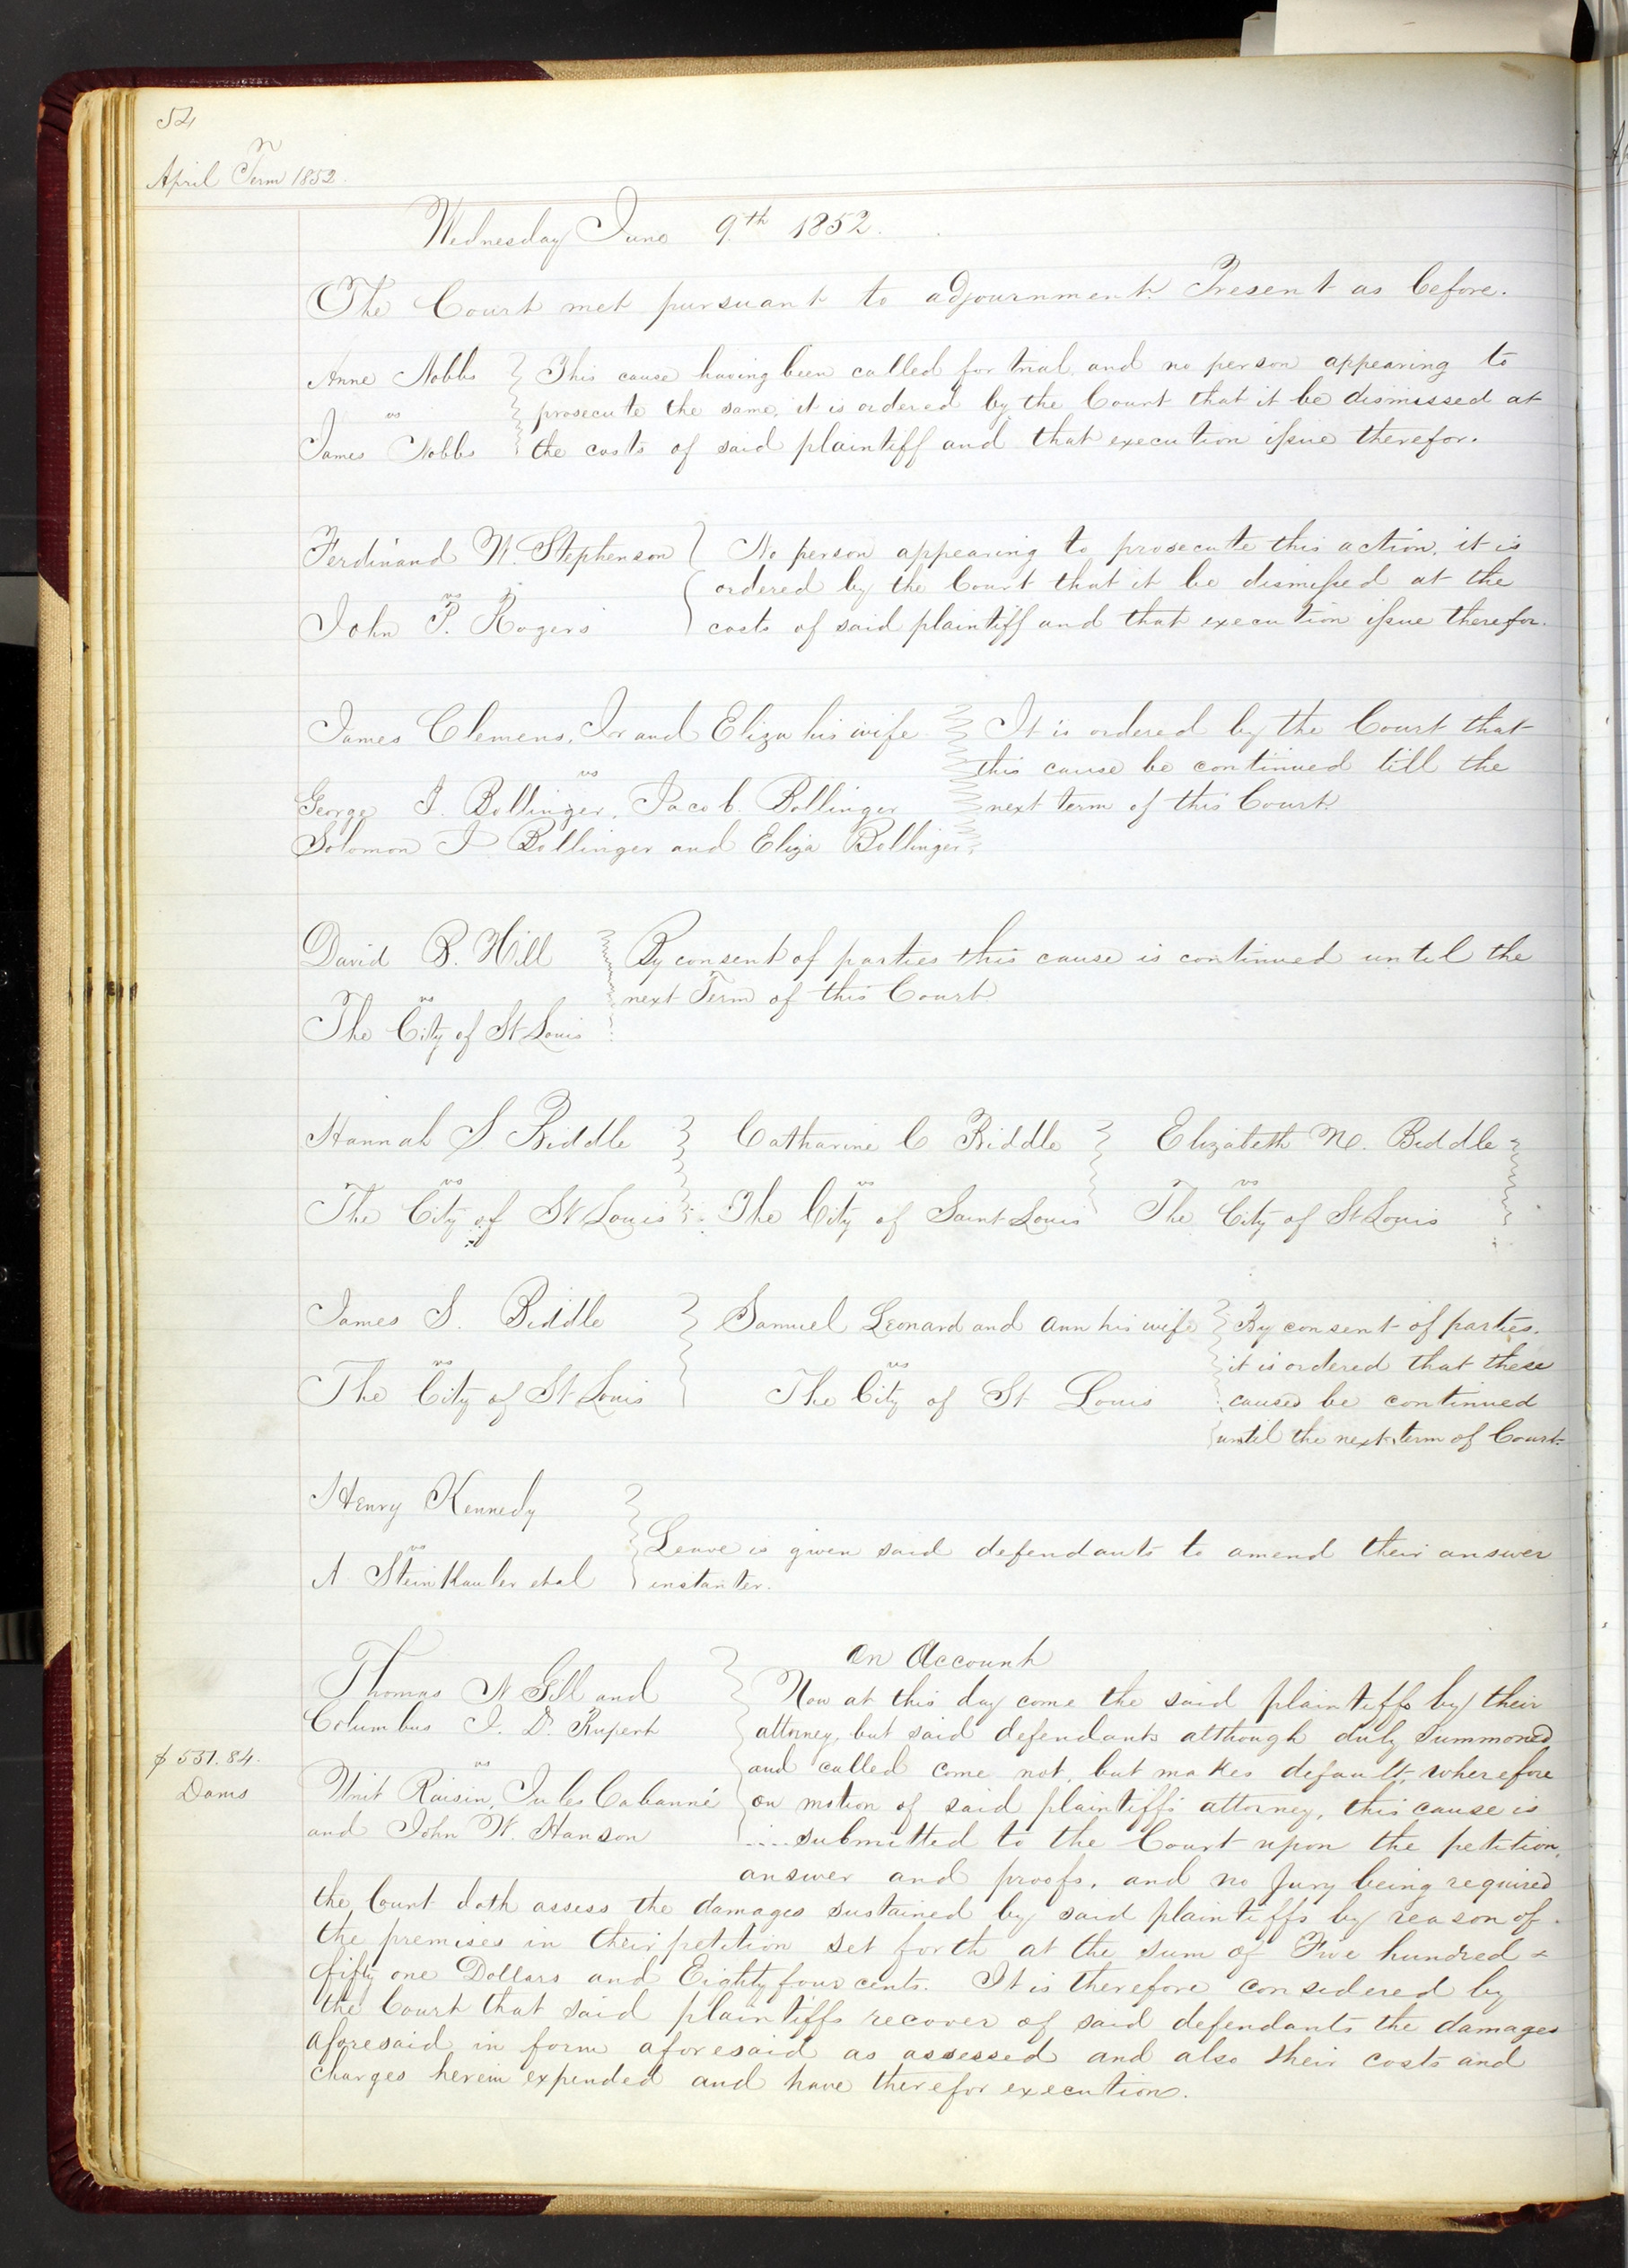 54
April Term 1852
Wednesday June 9th 1852.
The Court met pursuant to adjournment. Present as before.
Anne Nobbs
vs
James Nobbs
This cause having been called for trial, and no person appearing to
prosecute the same, it is ordered by the Court that it be dismissed at
the costs of said plaintiff and that execution issue therefor.
Ferdinand W. Stephenson
vs
John P. Rogers
No person appearing to prosecute this action, it is
ordered by the Court that it be dismissed at the
costs of said plaintiff and that execution issue therefor.
James Clemens, Jr and Eliza his wife
vs
George J. Bollinger, Jacob Bollinger
Solomon J Bollinger and Eliza Bollinger,
It is ordered by the Court that
this cause be continued till the
next term of this Court.
David B. Hill
vs
The City of St Louis
By consent of parties this cause is continued until the
next Term of this Court.
Hannah S. Biddle
vs
The City of St Louis
Catharine C Biddle
vs
The City of Saint Louis
Elizabeth M. Biddle
vs
The City of St Louis
James S. Biddle
vs
The City of St Louis
Samuel Leonard and Ann his wife
vs
The City of St Louis
By consent of parties.
it is ordered that these
causes be continued
until the next term of Court.
Henry Kennedy
vs
A Steinkauler et al
Leave is given said defendants to amend their answer
instanter.
Thomas N Gill and
Columbus I. D. Rupert
vs
Unit Raisin, Jules Cabanné
and John W. Hanson
$551.84.
Dams
On Account
Now at this day come the said plaintiffs by their
attorney, but said defendants although duly summoned
and called come not, but makes default, wherefore
on motion of said plaintiffs attorney, this cause is
submitted to the Court upon the petition,
answer and proofs, and no Jury being required
the Court doth assess the damages sustained by said plaintiffs by reason of
the premises in their petition set forth at the sum of Five hundred &
fifty one Dollars and Eighty four cents. It is therefore considered by
the Court that said plaintiffs recover of said defendants the damages
aforesaid in form aforesaid as assessed and also their costs and
charges herein expended and have therefor execution.